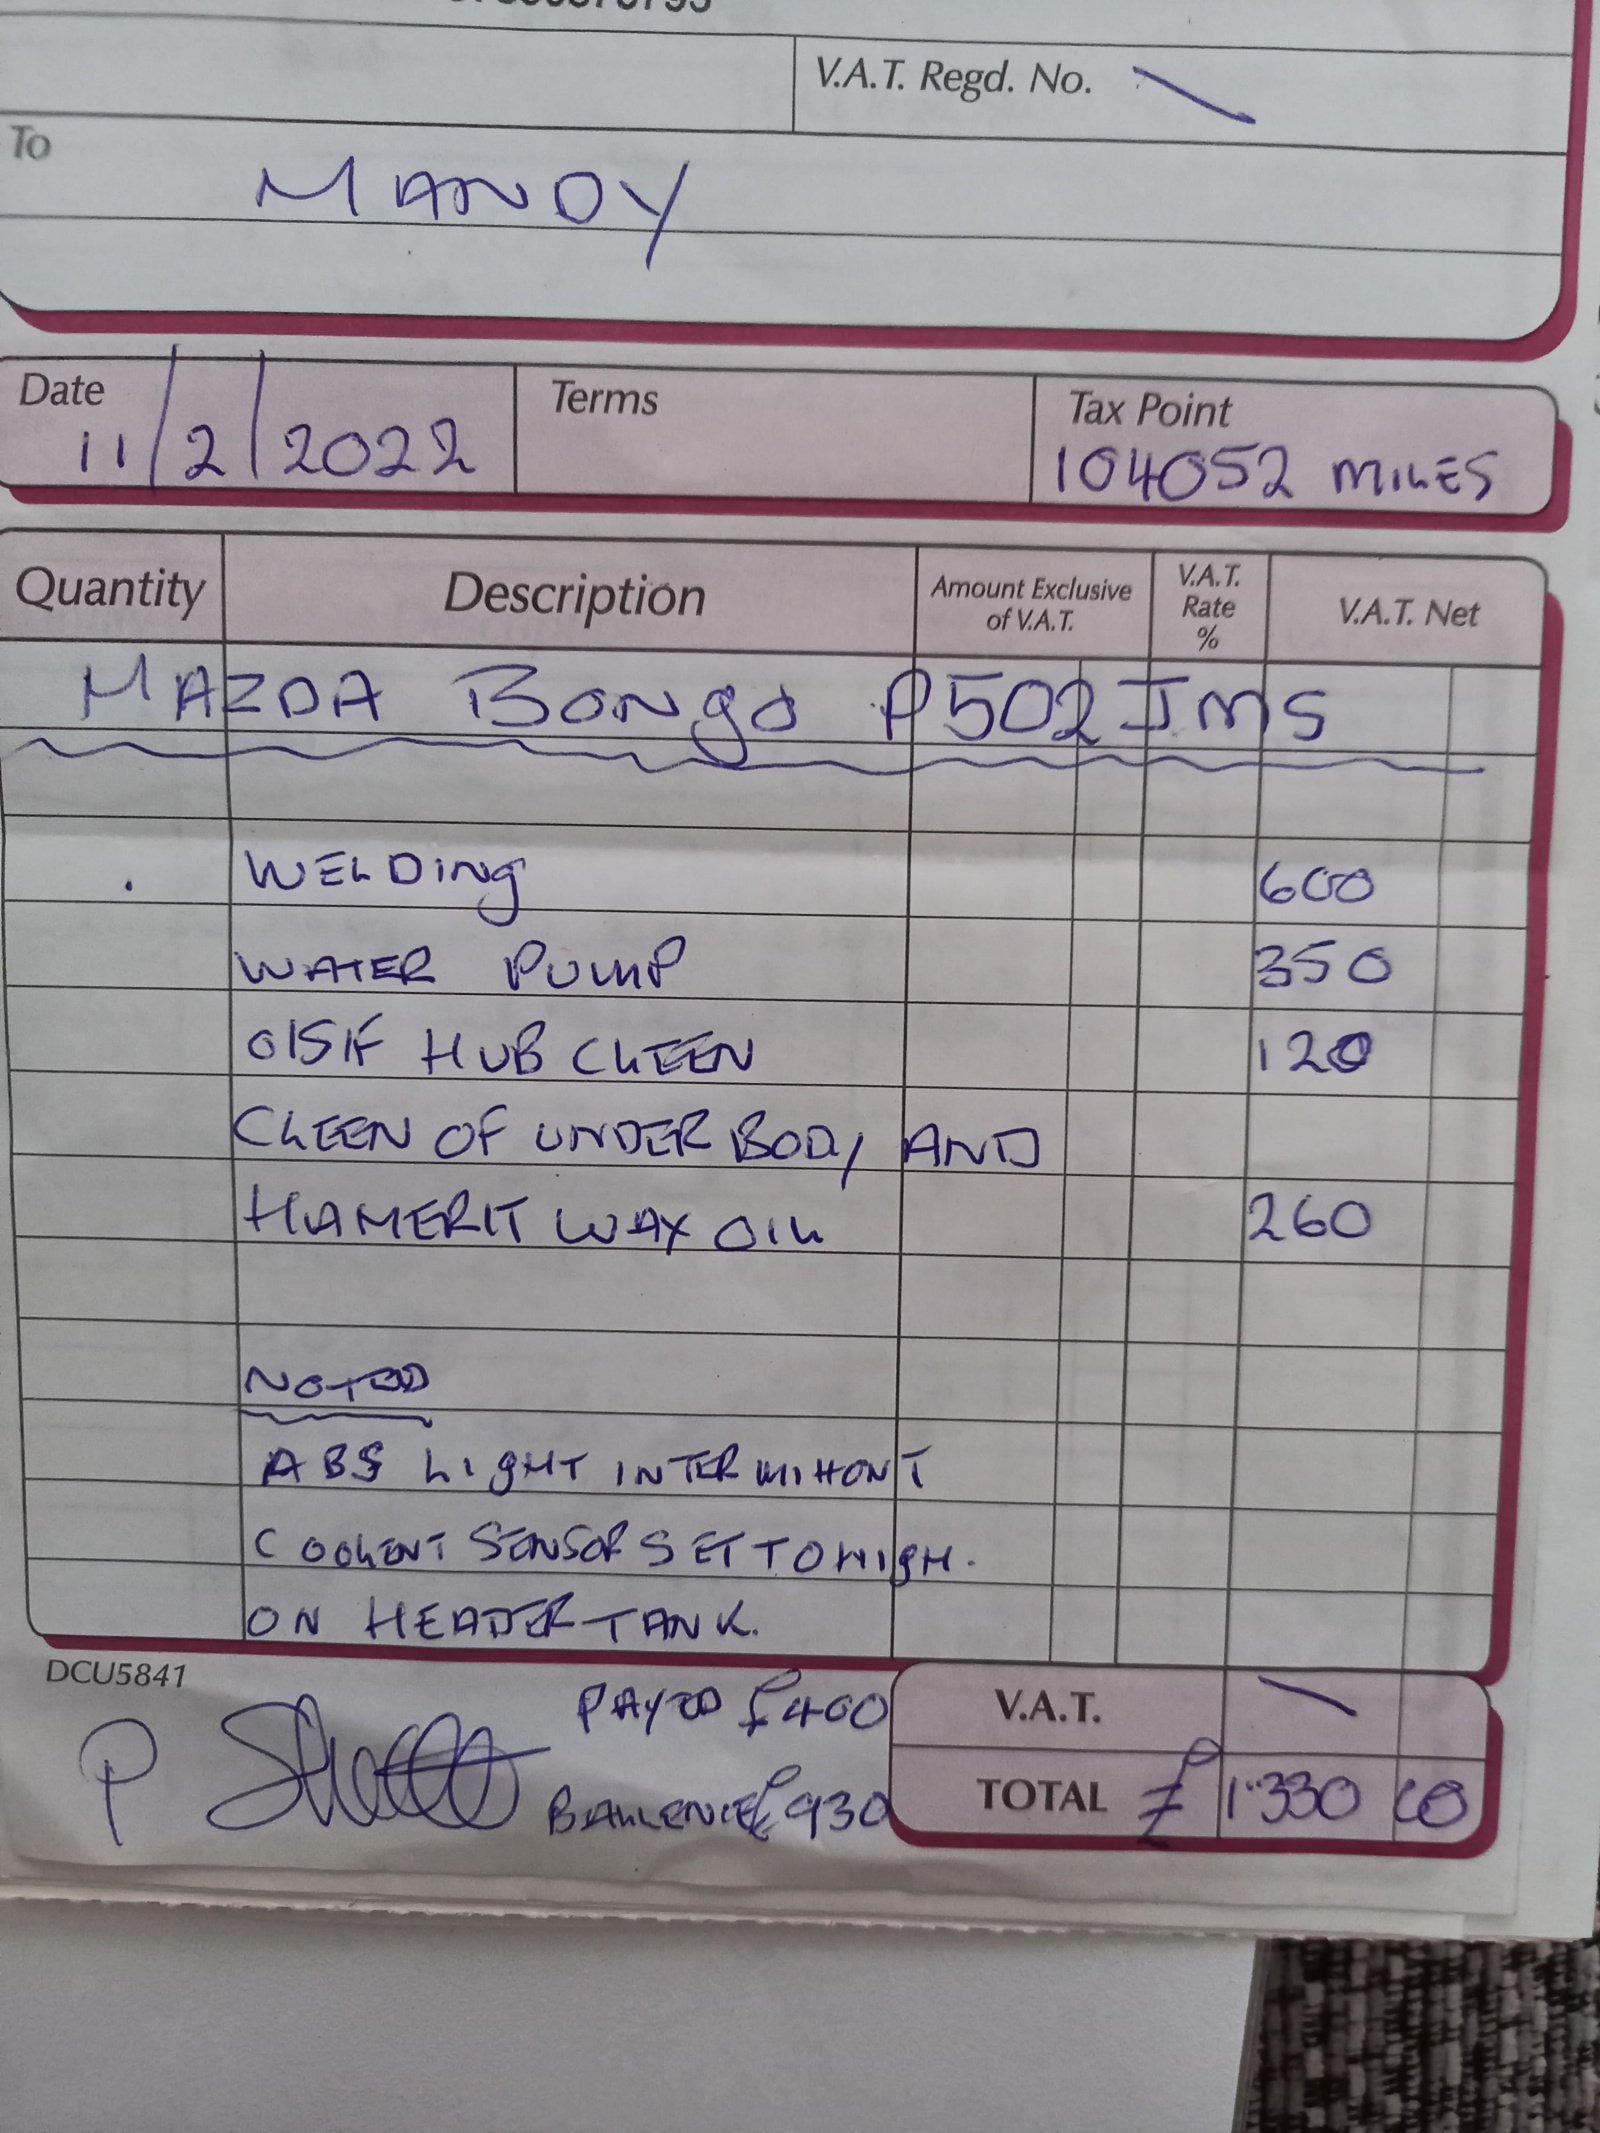 V.A.T. Regd. No. \
To
MANDY
Date
11/2/2022
Terms
Tax Point
104052 MILES
Quantity
Description
Amount Exclusive
of V.A.T.
V.A.T.
Rate
%
V.A.T. Net
MAZDA BONgO P502 JMS
WELDING 600
WATER PUMP 350
HUB CLEEN 120
CLEEN OF UNDER BODY AND
HAMERIT WAX OIL 260
NOTED
ABS LIGHT INTERMITTONT
COOLENT SENSOR SET TO HIGH.
ON HEADER TANK.
DCU5841
PAYED £400
V.A.T. \
P
BALLENCE £930
TOTAL £ 1.330 00